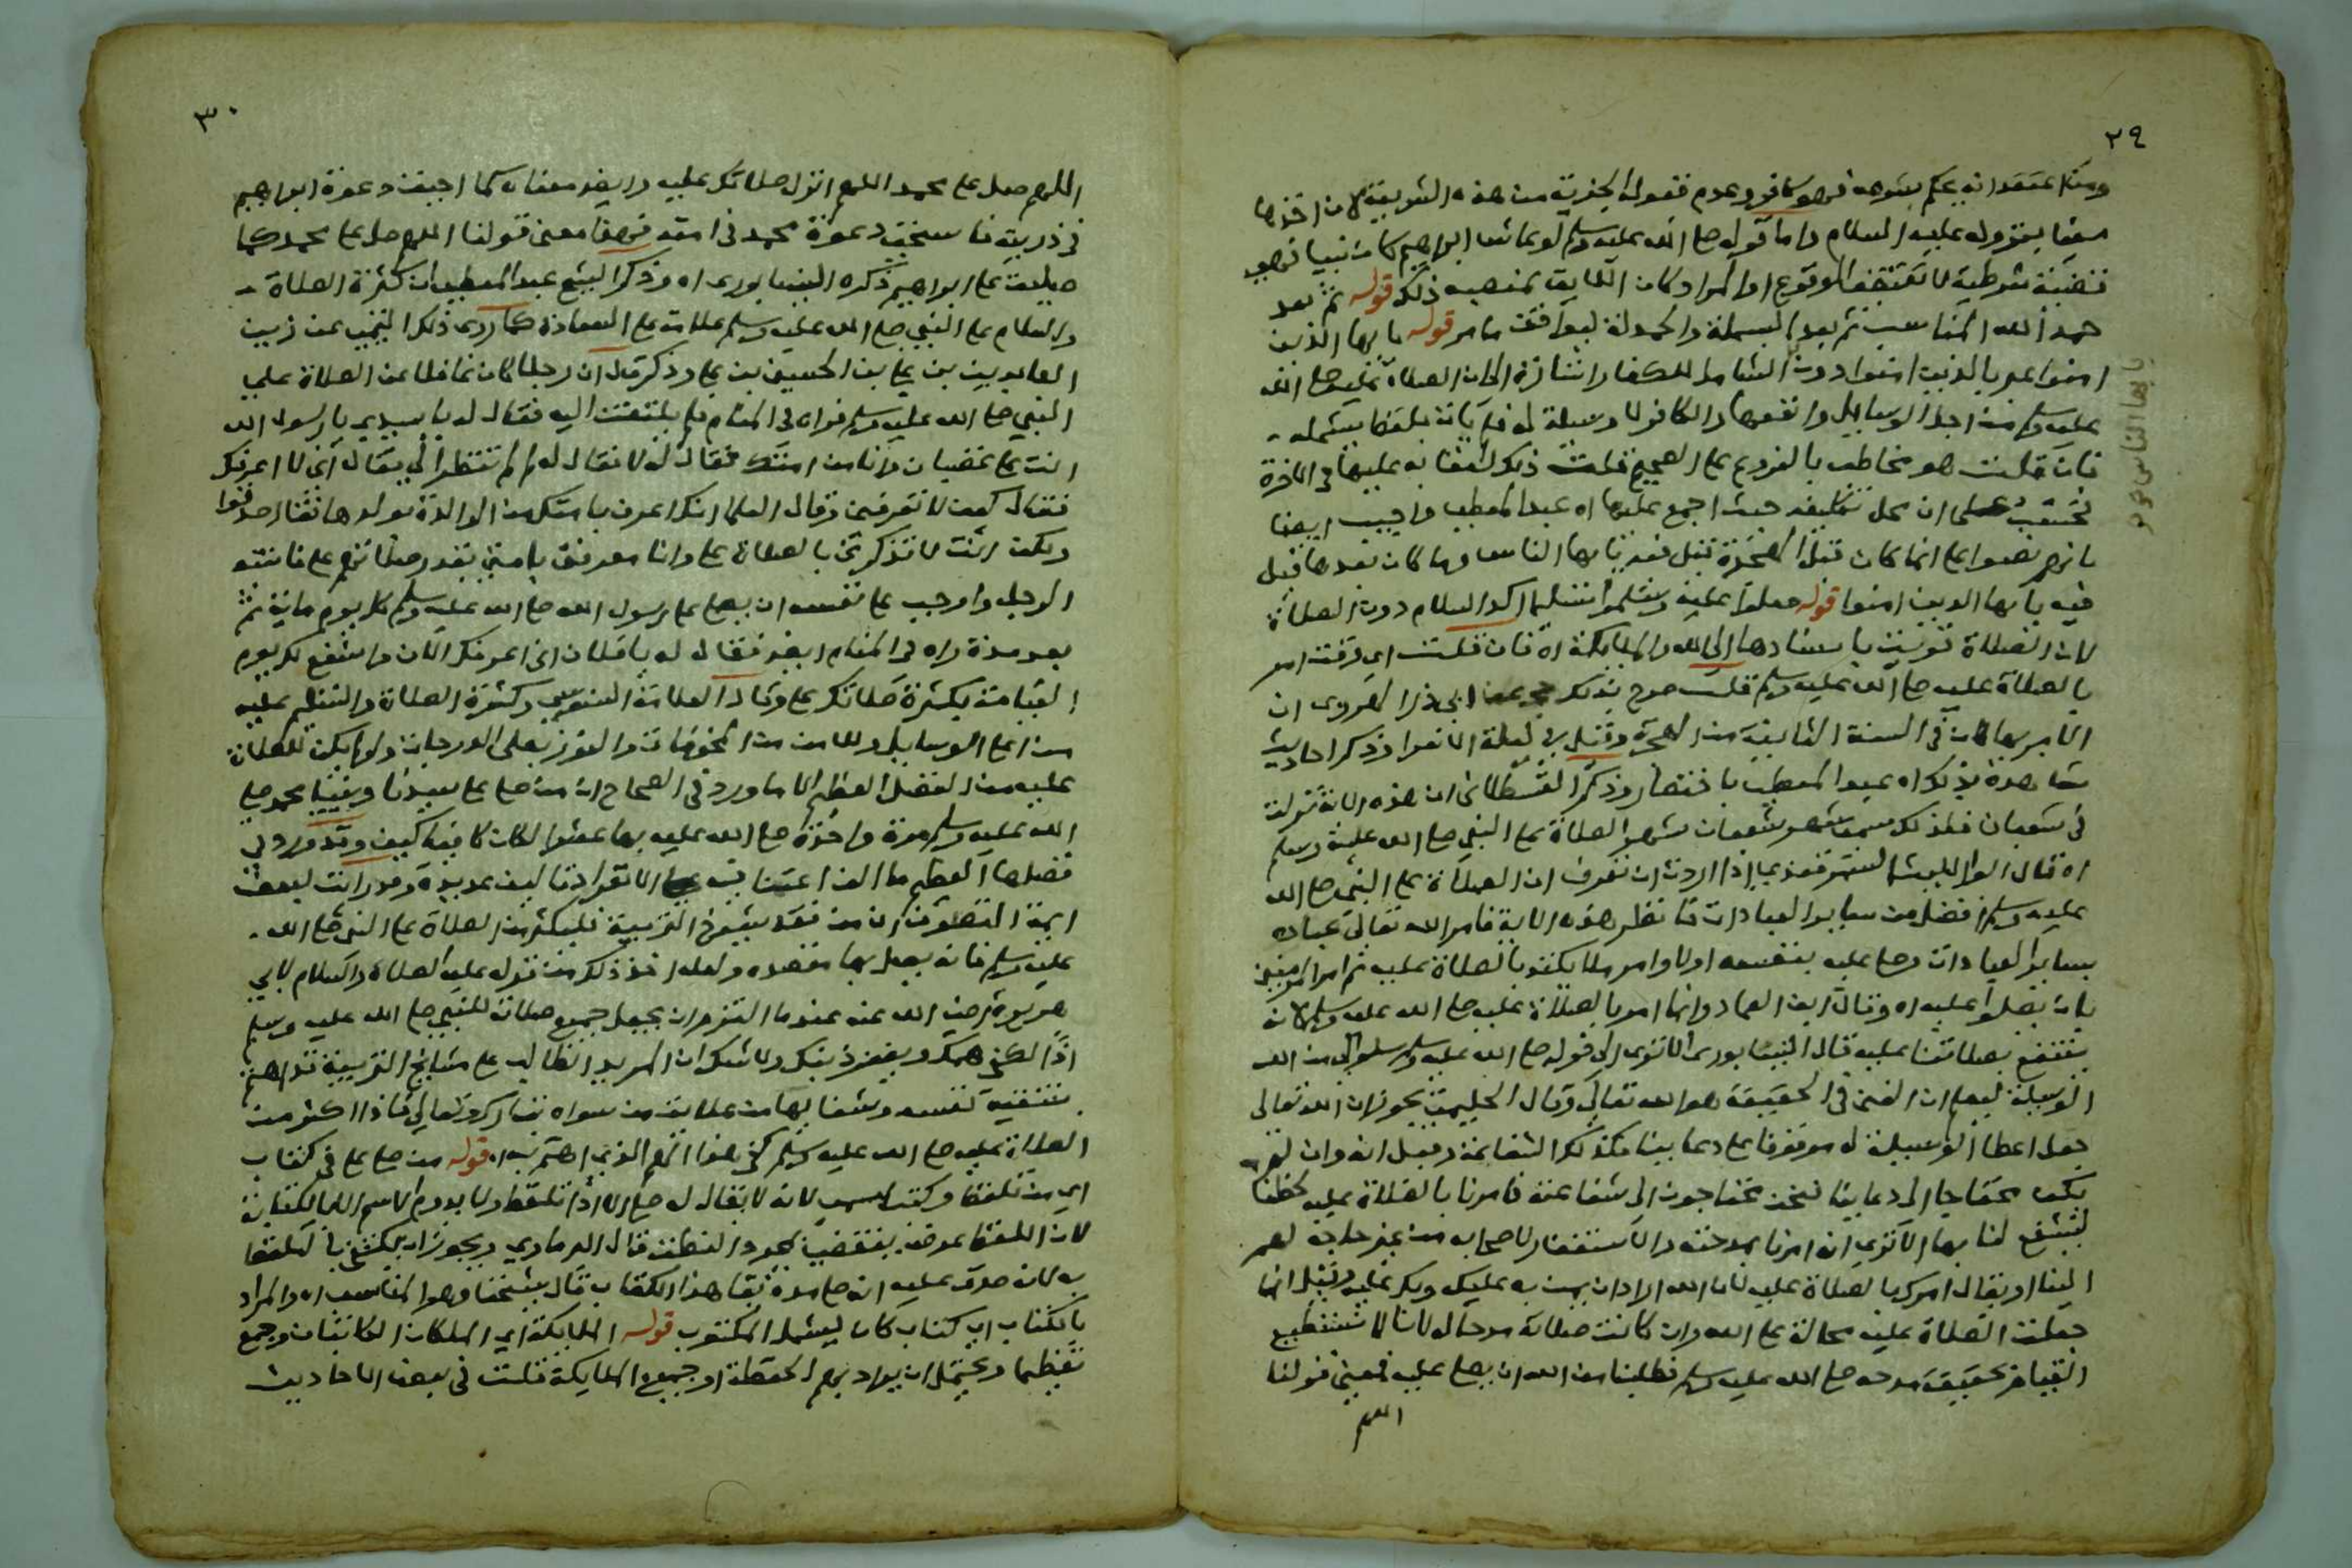 ٢٩
ومن اعتقد انه يحكم بشرعه فهو كافر وعدم قبوله الجزية من هذه الشريعة لان اخذها
مغيا بنزوله عليه السلام واما قوله صلى الله عليه وسلم لو عاش ابراهيم كان نبيا فهو
قضية شرطية لا تقتضي الوقوع او المراد كان اللايق بمنصبه ذلك قوله ثم بعد
حمد الله المناسب ثم بعد البسملة والحمدلة ليوافق ما مر قوله يا ايها الذين
امنوا عبر بالذين امنوا دون الناس الشامل للكفار اشارة الى ان الصلاة عليه صلى الله
عليه وسلم من اجل الوسايل وانفعها والكافر لا وسيلة له فلم يات بلفظ يشمله
فان قلت هو مخاطب بالفروع على الصحيح قلت ذلك لعقابه عليها في الاخرة
على ان محل تكليفه حيث اجمع عليها اه عبد المعطي واجيب ايضا
بانهم نصوا على انما كان قبل الهجرة قيل فيه يا ايها الناس وما كان بعدها قيل
فيه يا ايها الذين امنوا قوله صلوا عليه وسلموا تسليما اكد السلام دون الصلاة
لان الصلاة قويت باسنادها الى الله والملايكة اه فان قلت اي وقت امر
بالصلاة عليه صلى الله عليه وسلم قلت صرح بذلك ابي ذر الهروي ان
الامر بها كان في السنة الثانية من الهجرة وقيل في ليلة الاسرا وذكر احاديث
شاهدة بذلك اه عبد المعطي باختصار وذكر القسطلاني ان هذه الاية نزلت
في شعبان فلذلك سمي شهر شعبان شهر الصلاة على النبي صلى الله عليه وسلم
اه قال ابو الليث السمرقندي اذا اردت ان تعرف ان الصلاة على النبي صلى الله
عليه وسلم افضل من ساير العبادات فانظر هذه الاية فامر الله تعالى عباده
بساير العبادات وصلى عليه بنفسه اولا وامر ملايكته بالصلاة عليه ثم امر المومنين
بان يصلوا عليه اه وقال ابن العماد وانما امر بالصلاة عليه صلى الله عليه وسلم لانه
ينتفع بصلاتنا عليه قال النيسابوري الا ترى الى قوله صلى الله عليه وسلم سلوا لي من الله
الوسيلة ليعلم ان الغنى في الحقيقة هو الله تعالى وقال الحليمي يجوز ان الله تعالى
جعل اعطا الوسيلة له موقوفا على دعاينا فكذلك الشفاعة وقيل انه وان لم
يكن محتاجا الى دعاينا فنحن محتاجون الى شفاعته فامرنا بالصلاة عليه لحظنا
ليشفع لنا بها الا ترى انه امرنا بمدحته والاستغفار لاصحابه من غير حاجة لهم
الينا او يقال امرك بالصلاة عليه لان الله اراد ان يمن به عليك وبك عليه وقيل انما
جعلت الصلاة عليه محالة على الله وان كانت صلاته مدحا له لاننا لا نستطيع
القيام بحقيقة مدحه صلى الله عليه وسلم فطلبنا من الله ان يصلي عليه فمعنى قولنا
اللهم
٣٠
اللهم صل على محمد اللهم انزل صلاتك عليه وايضا معناه كما اجبت دعوة ابراهيم
في ذريته فاستجب دعوة محمد في امته فهذا معنى قولنا اللهم صل على محمد كما
صليت على ابراهيم ذكره النيسابوري اه وذكر الشيخ عبد المعطي ان كثرة الصلاة
والسلام على النبي صلى الله عليه وسلم علامة على السعادة كما روى ذلك عن زين
العابدين بن علي بن الحسين بن علي وذكر قال ان رجلا كان غافلا عن الصلاة على
النبي صلى الله عليه وسلم فراه في المنام فلم يلتفت اليه فقال له يا سيدي يا رسول الله
انت علي غضبان وانا من امتك فقال له لا فقال له لم لم تنظر الي فقال اني لا اعرفك
فقال كيف لا تعرفني وقال العلما انك اعرف بامتك من الوالدة بولدها فقال صدقوا
ولكن انت لا تذكرني بالصلاة علي وانا معرفتي بامتي بقدر صلاتهم علي فانتبه
الرجل واوجب على نفسه ان يصلي على رسول الله صلى الله عليه وسلم كل يوم ماية ثم
بعد مدة راه في المنام ايضا فقال له يا فلان اني اعرفك الان واشفع لك يوم
القيامة بكثرة صلاتك علي وقال العلامة السنوسي وكثرة الصلاة والتسليم عليه
من اعلى الوسايل وللامن من المخوفات والفوز بعلى الدرجات ولو لم يكن للصلاة
عليه من الفضل العظيم الا ما ورد في الصحاح ان من صلى على سيدنا ونبينا محمد صلى
الله عليه وسلم مرة واحدة صلى الله عليه بها عشرا لكان كافيه كيف وقد ورد في
فضلها العظيم ما الف اعتنا به على الانفراد تاليف عديدة وقد رايت لبعض
ايمة التصوف ان من فقد شيوخ التربية فليكثر من الصلاة على النبي صلى الله
عليه وسلم فانه يصل بها مقصده ولعله اخذ ذلك من قوله عليه الصلاة والسلام لابي
هريرة رضي الله عنه عندما التزم ان يجعل جميع صلاته للنبي صلى الله عليه وسلم
اذا تكفى همك ويغفر ذنبك ولا شك ان المريد الطالب على مشايخ التربية
تنقية نفسه وشفايها من علايق من سواه تبارك وتعالى فاذا اكثر من
الصلاة عليه صلى الله عليه وسلم كفي هذا الهم الذي اهتم به اه قوله من صلى علي في كتاب
اي من تلفظ وكتب لانه لا يقال له صلى الا اذا تلفظ ولا يدوم الاسم الا بالكتابة
لان اللفظ عرض ينقضي بمجرد النطق قال الدماميني ويجوز ان يكتفى باللفظ
به لانه صدق عليه انه صلى مدة بقا هذا الكتاب قال شيخنا وهو المناسب اه والمراد
بالكتاب اي كتاب كان ليشمل المكتوب قوله الملايكة اي الملكان الكاتبان وجمع
تعظيما ويحتمل ان يراد بهم الحفظة او جميع الملايكة قلت في بعض الاحاديث